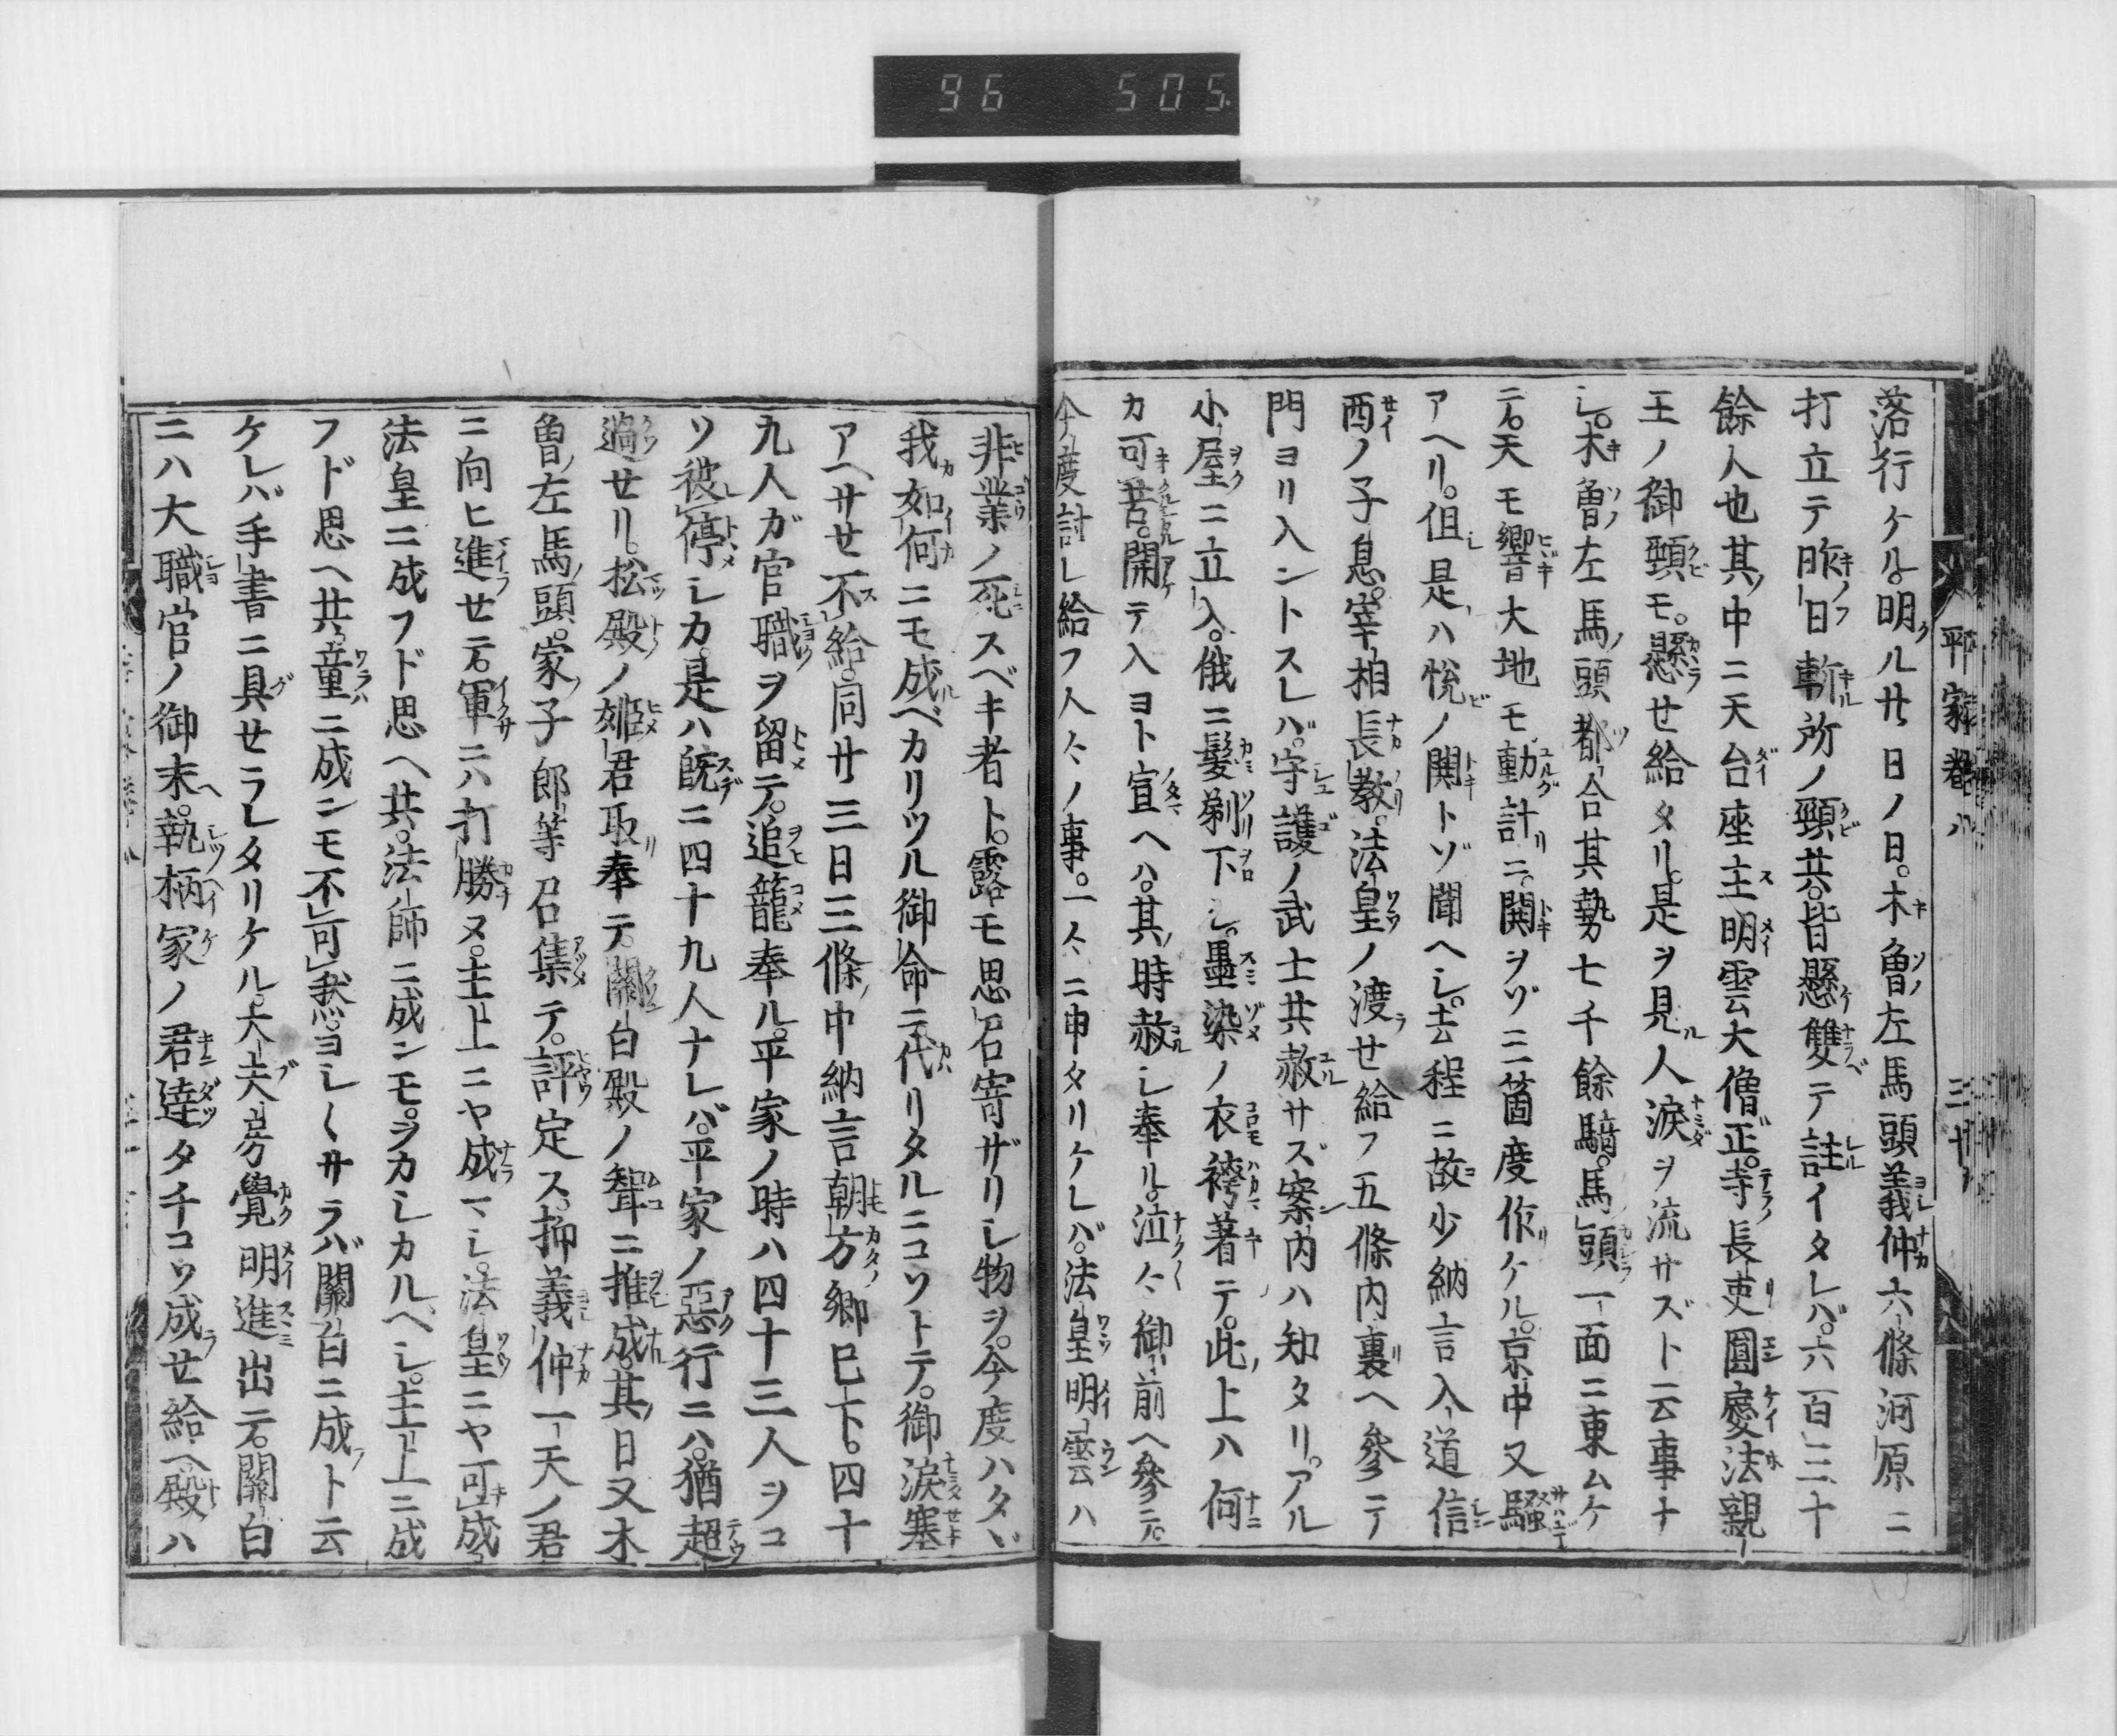 96 505
平家巻八 三十
落行ケル。明ル廿日ノ日。木曽左馬頭義仲六條河原ニ
打立テ昨日斬所ノ頸共。皆懸雙テ註イタレバ。六百三十
餘人也其中ニ天台座主明雲大僧正。寺長吏圓慶法親
王ノ御頸モ。懸セ給タリ。是ヲ見人淚ヲ流サズト云事ナ
シ。木曽左馬頭都合其勢七千餘騎。馬頭一面ニ東ムケ
テ。天モ響大地モ動計ニ。鬨ヲゾ三箇度作ケル。京中又騒
アヘリ。但是ハ悅ノ鬨トゾ聞ヘシ。去程ニ故少納言入道信
西ノ子息。宰相長教。法皇ノ渡セ給フ五條內裏ヘ參テ
門ヨリ入ントスレバ。守護ノ武士共赦サズ案內ハ知タリ。アル
小屋ニ立入。俄ニ髮剃下シ。墨染ノ衣袴著テ。此上ハ何
カ可苦。開テ入ヨト宣ヘハ。其時赦シ奉ル。泣々御前ヘ參テ。
今度討レ給フ人々ノ事。一々ニ申タリケレバ。法皇明雲ハ
非業ノ死スベキ者ト。露モ思召寄ザリシ物ヲ。今度ハタヾ
我如何ニモ成ベカリツル御命ニ代リタルニコソトテ。御淚塞
アヘサセ不給。同廿三日三條中納言朝方卿已下。四十
九人ガ官職ヲ留テ。追籠奉ル。平家ノ時ハ四十三人ヲコ
ソ被停シカ。是ハ既ニ四十九人ナレバ。平家ノ惡行ニハ。猶超
過セリ。松殿ノ姬君取奉テ。關白殿ノ聟ニ推成。其日又木
曽左馬頭。家子郎等召集テ。評定ス。抑義仲一天ノ君
ニ向ヒ進セテ。軍ニハ打勝ヌ。主上ニヤ成マシ。法皇ニヤ可成
法皇ニ成フド思ヘ共。法師ニ成ンモ。ヲカシカルヘシ。主上ニ成
フド思ヘ共。童ニ成ンモ不可然。ヨシ〱サラバ關白ニ成フト云
ケレバ手書ニ具セラレタリケル。大夫房覺明進出テ。關白
ニハ大職官ノ御末。執柄家ノ君達タチコソ成セ給ヘ殿ハ